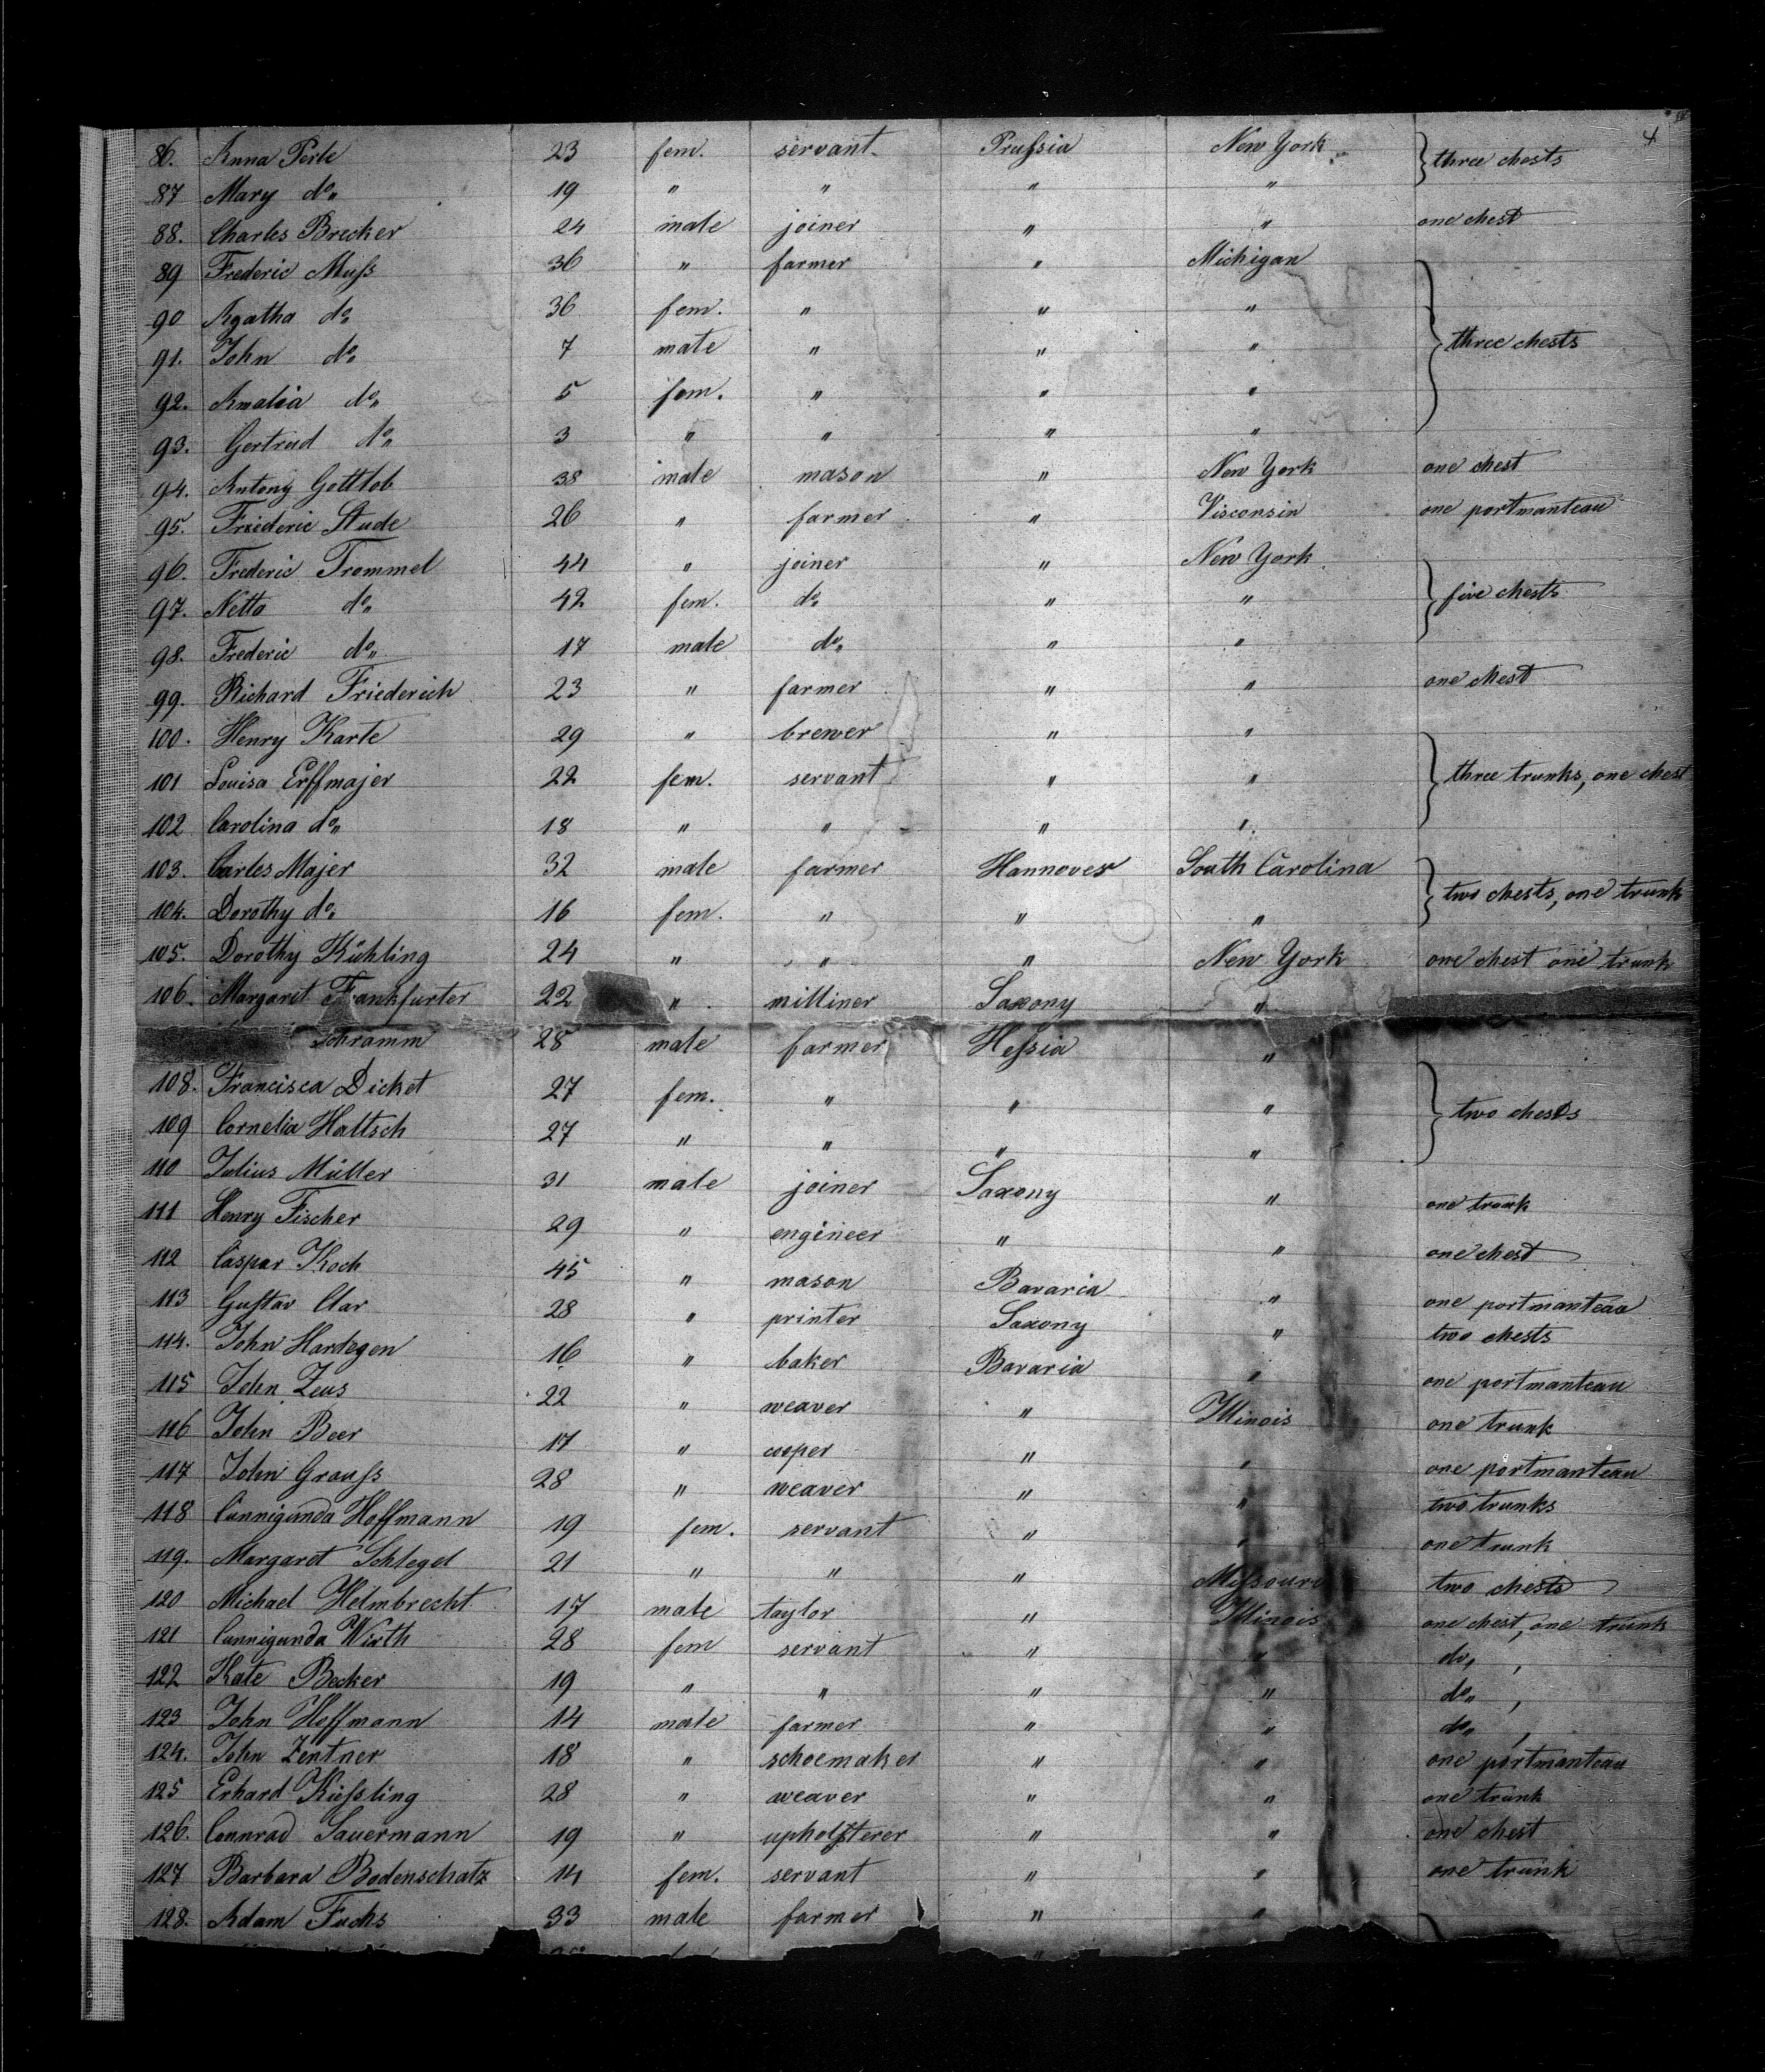 4
86. Anna Perle 23 fem. servant Prussia New York three chests
87 Mary do „ 19 " " " "
88. Charles Brecker 24 male joiner " " one chest
89 Frederic Muss 36 " farmer " Michigan
90 Agatha do „ 36 fem. " " "
91. John do „ 7 male " " " three chests
92. Amalia do „ 5 fem. " " "
93. Gertrud do „ 3 " " " "
94. Antony Gottlob 38 male mason " New York one chest
95. Friederic Stude 26 " farmer " Visconsin one portmanteau
96. Frederic Trommel 44 " joiner " New York
97. Netta do „ 42 fem. do „ " " five chests
98. Frederic do „ 17 male do „ " "
99. Richard Friederich 23 " farmer " " one chest
100. Henry Karte 29 " brewer " "
101 Louisa Erffmajer 22 fem. servant " " three trunks, one chest
102 Carolina do „ 18 " " " "
103. Carles Majer 32 male farmer Hannover South Carolina
104. Dorothy do „ 16 fem. " " " two chests, one trunk
105. Dorothy Kühling 24 " " " New York one chest one trunk
106. Margaret Frankfurter 22 " milliner Saxony "
Schramm 28 male farmer Hessia "
108. Francisca Dicket 27 fem. " " " two chests
109 Cornelia Hattsch 27 " " " "
110 Julius Müller 31 male joiner Saxony " one trunk
111 Henry Fischer 29 " engineer " " one chest
112 Caspar Koch 45 " mason Bavaria " one portmanteau
113 Gustav Clar 28 " printer Saxony " two chests
114. John Hardegen 16 " baker Bavaria " one portmanteau
115 John Zeus 22 " weaver " Illinois one trunk
116 John Beer 17 " cooper " " one portmanteau
117 John Grauss 28 " weaver " " two trunks
118 Cunnigunda Hoffmann 19 fem. servant " " one trunk
119. Margaret Schlegel 21 " " " Missouri two chests
120 Michael Helmbrecht 17 male taylor " Illinois one chest, one trunk
121 Cunnigunda Wirth 28 fem servant " " do „ ,
122 Kate Becker 19 " " " " do „ ,
123 John Hoffmann 14 male farmer " " do „ ,
124. John Zentner 18 " schoemaker " " one portmanteau
125 Erhard Kiessling 28 " weaver " " one trunk
126. Connrad Sauermann 19 " upholsterer " " one chest
127 Barbara Bodenschatz 14 fem. servant " " one trunk
128. Adam Fuchs 33 male farmer " "